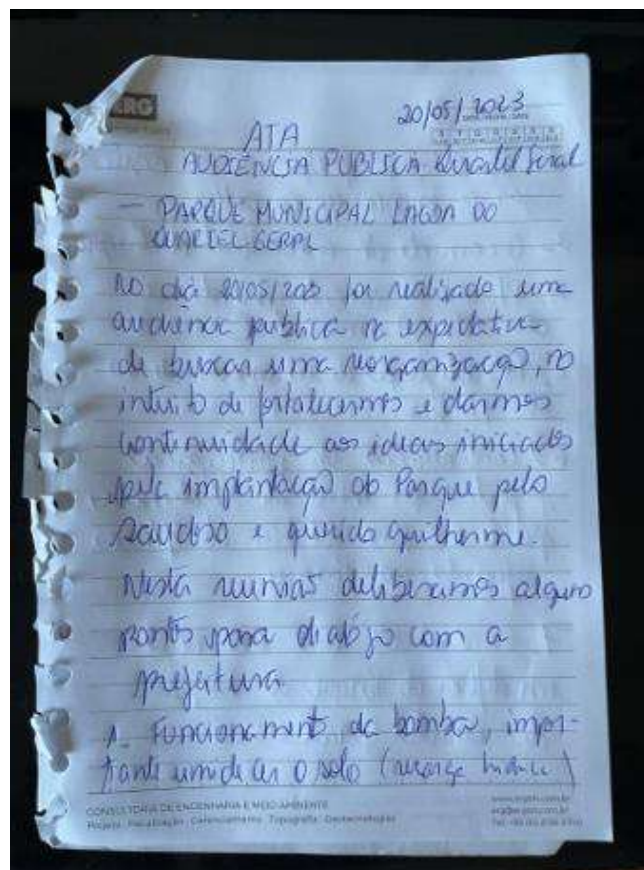 ERG
20/05/2023
ATA
AUDIÊNCIA PUBLICA Quartel Geral
— PARQUE MUNICIPAL LAGOA DO
QUARTEL GERAL
No dia 20/05/2023 foi realizado uma
audiência publica na expectativa
de buscar uma reorganização, no
intuito de fortalecermos e darmos
continuidade as ideias iniciadas
pela implantação do Parque pelo
saudoso e querido Guilherme.
Nesta reunião deliberamos alguns
pontos para dialogo com a
prefeitura
1. Funcionamento da bomba, impor-
tante umidecer o solo (recarga
CONSULTORIA DE ENGENHARIA E MEIO AMBIENTE
Projeto Fiscalização Gerenciamento Topografia Geotecnologias